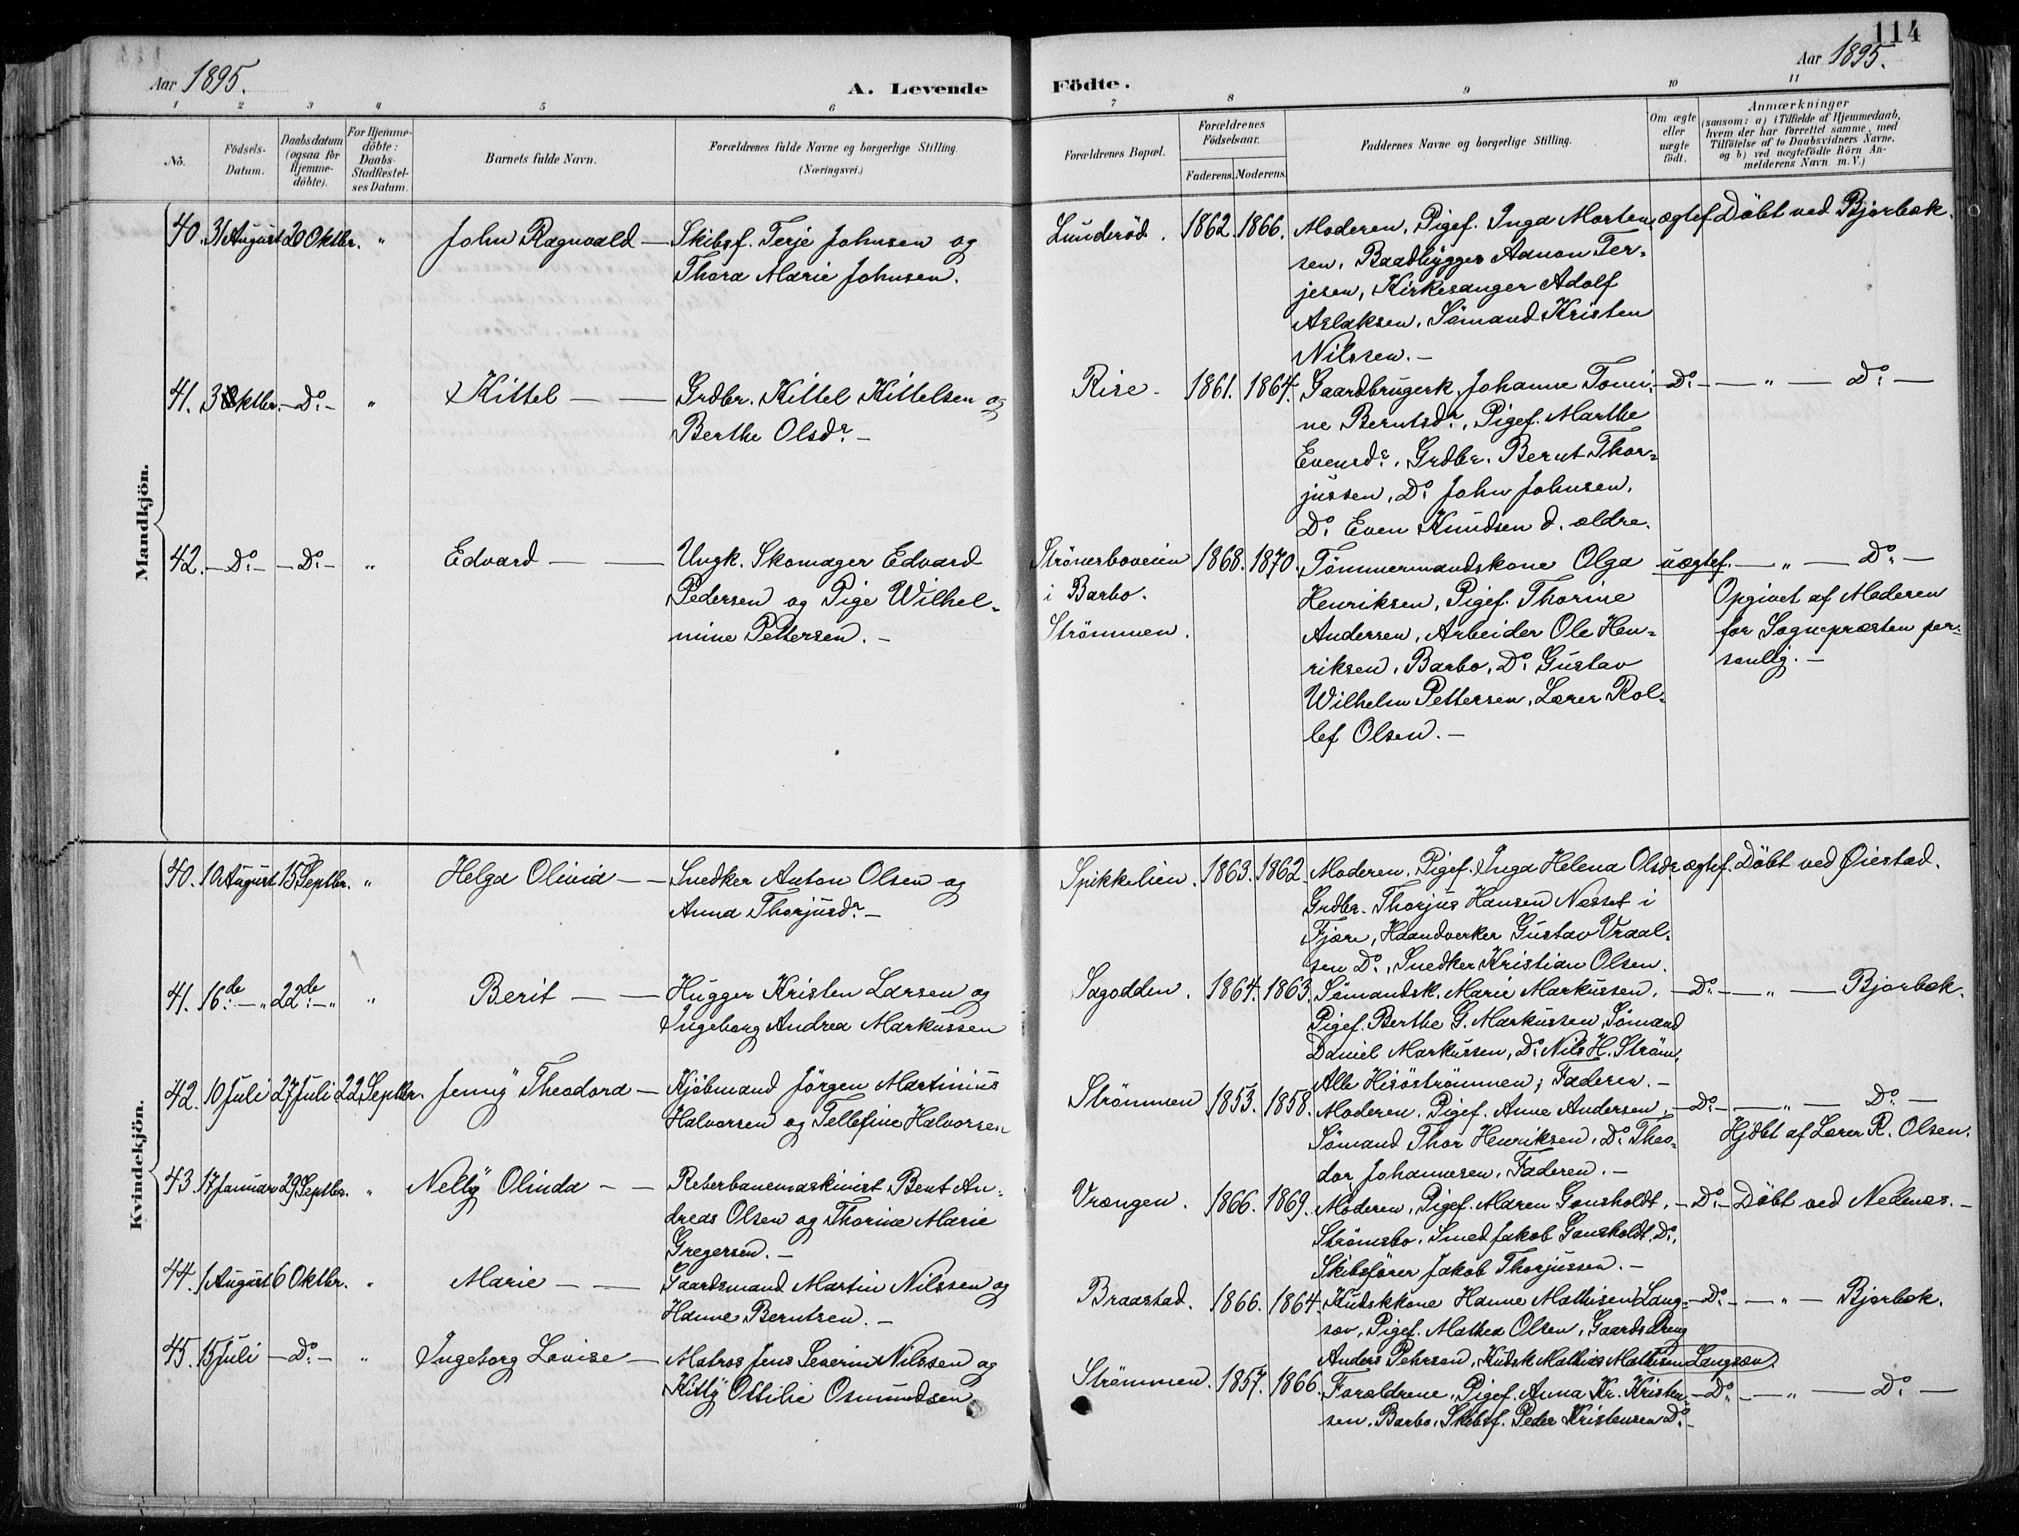 114
Aar 1895.
A. Levende Födte.
Aar 1895.
1 2 3 4 5 6 7 8 9 10 11
No.
Födsels-Datum.
Daabsdatum (ogsaa for Hjemme-döbte).
For Hjemme-döbte: Daabs-Stadfæstel-ses Datum.
Barnets fulde Navn.
Forældrenes fulde Navne og borgerlige Stilling.
(Næringsvei.)
Forældrenes Bopæl.
Forældrenes Födselsaar.
Faderens. Moderens.
Faddernes Navne og borgerlige Stilling.
Om ægte eller uægte födt.
Anmærkninger
(saasom: a) i Tilfælde af Hjemmedaab,
hvem der har forrettet samme, med
Tilföielse af to Daabsvidners Navne,
og b) ved uægtefödte Börn An-
melderens Navn m. V.)
Mandkjön.
40. 31 August 20 Oktbr. " John Ragnvald — Skibsf. Terje Johnsen og
Thora Marie Johnsen.
Lunderød. 1862. 1866. Moderen, Pigef. Inga Morten ægtef. Döbt ved Bjorbæk.
sen, Baadbygger Aanon Ter-
jesen, Kirkesanger Adolf
Aslaksen, Sömand Kristen
Nilssen. —
41. 3 Oktbr. — Do. — " Kittel — — Grdbr. Kittel Kittelsen og
Berthe Olsdr. —
Rise. 1861. 1864. Gaardbrugerk. Johanne Tomi- — Do. — — " — Do. —
ne Berntsdr., Pigef. Marthe
Evensdr., Grdbr. Bernt Thor-
jussen, Do. John Johnsen,
Do. Even Knudsen d. ældre.
42. — Do. — — Do. — " Edvard — — Ungk. Skomager Edvard
Pedersen og Pige Wilhel-
mine Pettersen. —
Strömsboveien 1868. 1870. Tömmermandskone Olga uægtef. — " — Do. —
i Barbo.
Strömmen.
Henriksen, Pigef. Thorine
Andersen, Arbeider Ole Hen-
riksen, Barbo, Do. Gustav
Wilhelm Pettersen, Lærer Rol-
lef Olsen. —
Opgivet af Moderen
for Sognepræsten per-
sonlig. —
Kvindekjön.
40. 10 August 15 Septbr. " Helga Olivia — — Snedker Anton Olsen og
Anna Thorjusdr. —
Spikkelien. 1863. 1862. Moderen, Pigef. Inga Helena Olsdr. ægtef. Döbt ved Öiestad.
Grdbr. Thorjus Hansen Næsset i
Fjære, Haandverker Gustav Vraal-
sen Do., Snedker Kristian Olsen.
41. 16de — " 22de — " " Berit — — Hugger Kristen Larsen og
Ingeborg Andrea Markussen
Sagodden. 1864. 1863. Sömandsk. Marie Markussen, — Do. — — " — Bjorbæk.
Pigef. Berthe G. Markussen, Sömand
Daniel Markussen, Do. Nils H. Ström,
Alle Hisöströmmen; Faderen. —
42. 10 Juli 27 Juli 22 Septbr. Jenny Theodora — Kjöbmand Jörgen Martinius
Halvorsen og Tellefine Halvorsen
Strömmen 1853. 1858. Moderen, Pigef. Anne Andersen, — Do. — — " — Do. —
Sömand Thor Henriksen, Do. Theo-
dor Johannesen, Faderen. —
Hjdbt af Lærer R. Olsen.
43. 17 Januar 29 Septbr. " Nelly Olinda — — Reberbanemaskinist Bent An-
dreas Olsen og Thorine Marie
Gregersen. —
Vrængen. 1866. 1869. Moderen, Pigef. Maren Gonsholdt, — Do. — Döbt ved Nedenæs. —
Strömsbo, Smed Jakob Gonsholdt, Do.,
Skibsförer Jakob Thorjussen. —
44. 1 August 6 Oktbr. " Marie — — Gaardsmand Martin Nilssen og
Hanne Berntsen. —
Braastad. 1866. 1864. Kudskkone Hanne Mathisen, Lang- — Do. — — " — Bjorbæk.
sæv, Pigef. Mathea Olsen, Gaardsdreng
Anders Pehrsen, Kudsk Mathias Mathisen Langsæv.
45. 15 Juli — Do. — " Ingeborg Lovise — Matros Jens Severin Nilssen og
Kitty Ottilie Osmundsen
Strömmen. 1857. 1866. Forældrene, Pigef. Anna Kr. Kristen- — Do. — — " — Do. —
sen, Barbo, Skibsf. Peder Kristensen Do. —